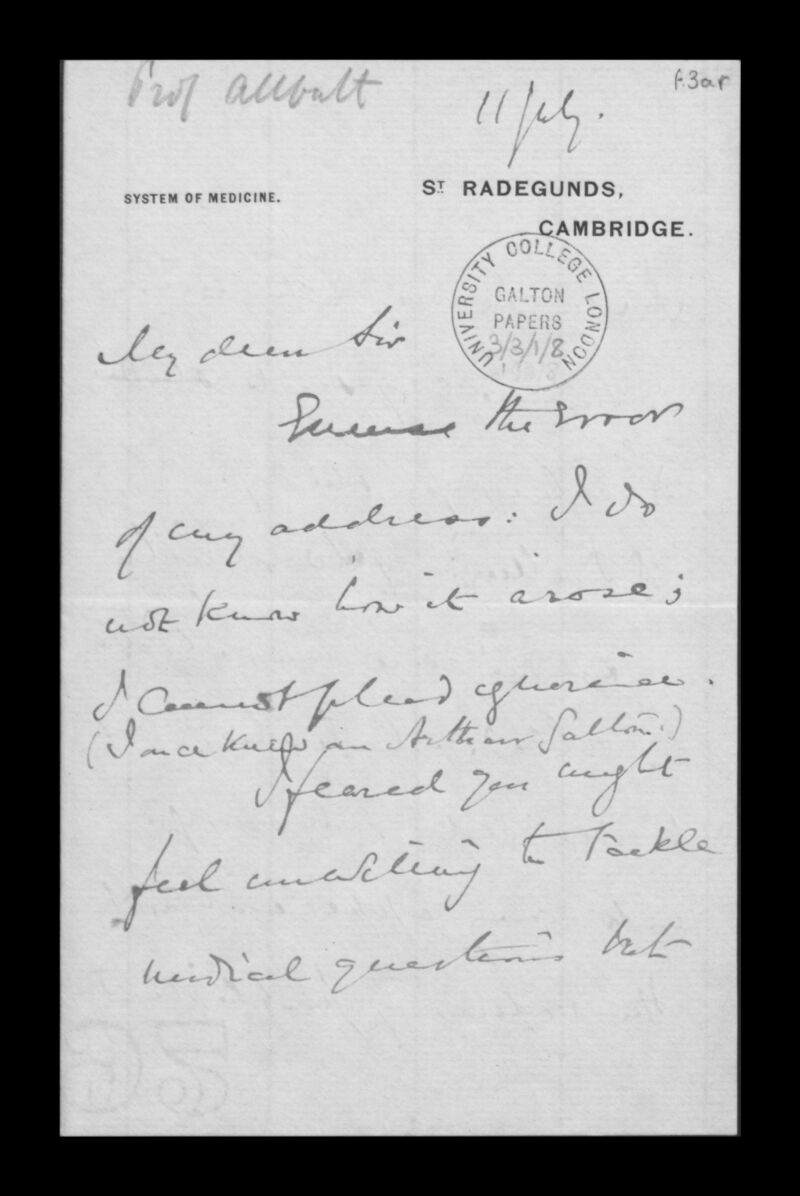 Prof Allbutt
f.3ar
11 July.
SYSTEM OF MEDICINE.
ST RADEGUNDS,
CAMBRIDGE.
UNIVERSITY COLLEGE LONDON
GALTON
PAPERS
3/3/1/8
My dear Sir
Excuse the Error
of my address: I do
not know how it arose;
I cannot plead ignorance.
(I once knew an Arthur Galton.)
I feared you might
feel unwilling to tackle
medical questions but